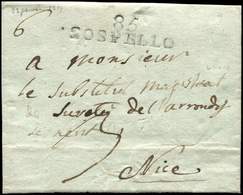 6
85
SOSPELLO
a monsieur
le substitut magistrat
de Sureté de l'arrondt
de nice
5
Nice